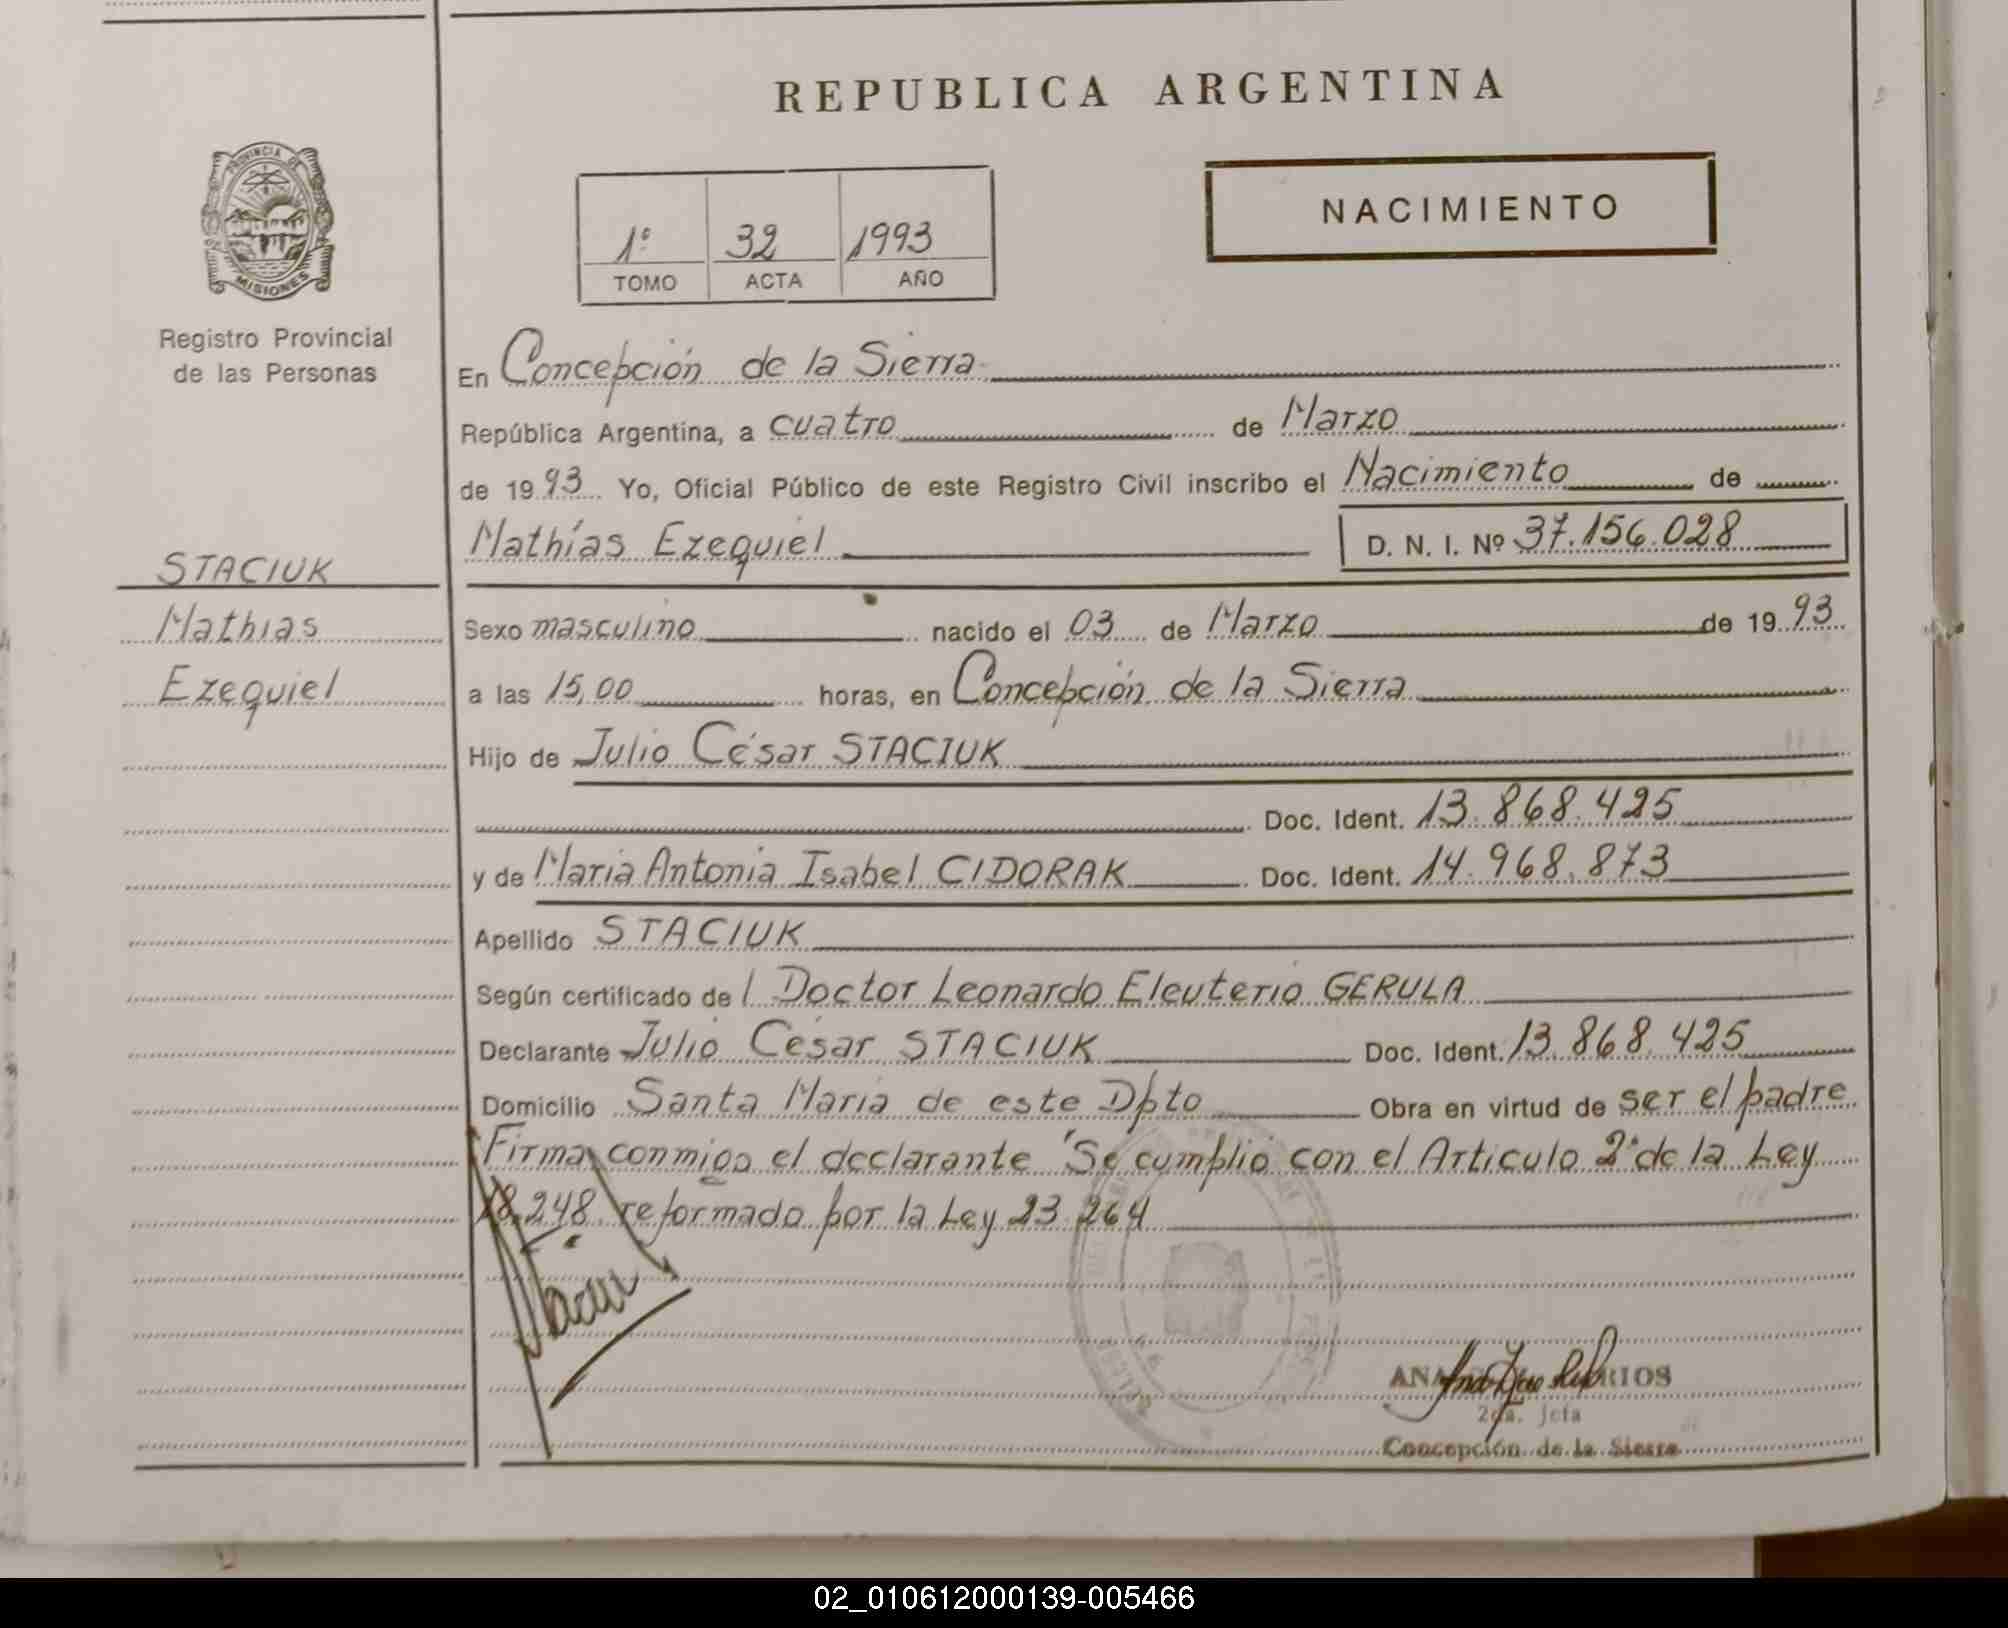 REPUBLICA ARGENTINA
PROVINCIA DE
MISIONES
Registro Provincial
de las Personas
1º 32 1993
TOMO ACTA AÑO
NACIMIENTO
En Concepción de la Sierra
República Argentina, a cuatro de Marzo
de 1993 Yo, Oficial Público de este Registro Civil inscribo el Nacimiento de
Mathías Ezequiel D. N. I. Nº 37.156.028
STACIUK
Mathias
Ezequiel
Sexo masculino nacido el 03 de Marzo de 1993
a las 15,00 horas, en Concepción de la Sierra
Hijo de Julio César STACIUK
Doc. Ident. 13.868.425
y de Maria Antonia Isabel CIDORAK Doc. Ident. 14.968.873
Apellido STACIUK
Según certificado de l Doctor Leonardo Eleuterio GERULA
Declarante Julio César STACIUK Doc. Ident. 13.868.425
Domicilio Santa Maria de este Dpto Obra en virtud de ser el padre
Firma conmigo el declarante Se cumplió con el Articulo 2º de la Ley
18.248 reformado por la Ley 23.264
ANA RIOS
2da. Jefa
Concepción de la Sierra
02_010612000139-005466